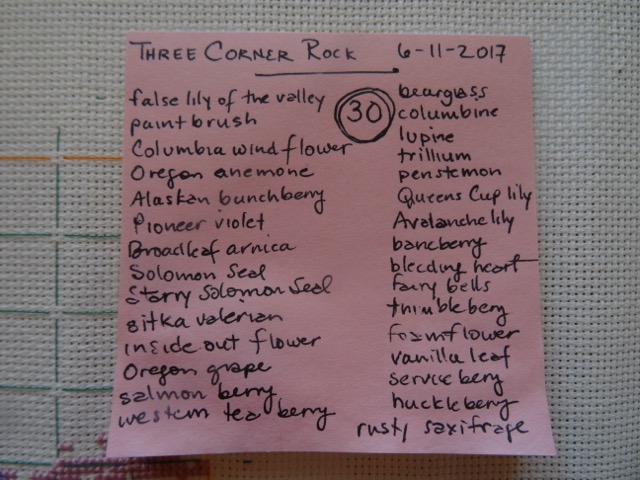 THREE CORNER ROCK 6-11-2017
30
false lily of the valley
paintbrush
Columbia windflower
Oregon anemone
Alaskan bunchberry
Pioneer violet
Broadleaf arnica
Solomon Seal
Starry Solomon Seal
sitka valerian
inside out flower
Oregon grape
salmon berry
western tea berry
beargrass
columbine
lupine
trillium
penstemon
Queens Cup lily
Avalanche lily
baneberry
bleeding heart
fairy bells
thimbleberry
foamflower
vanilla leaf
service berry
huckleberry
rusty saxifrage